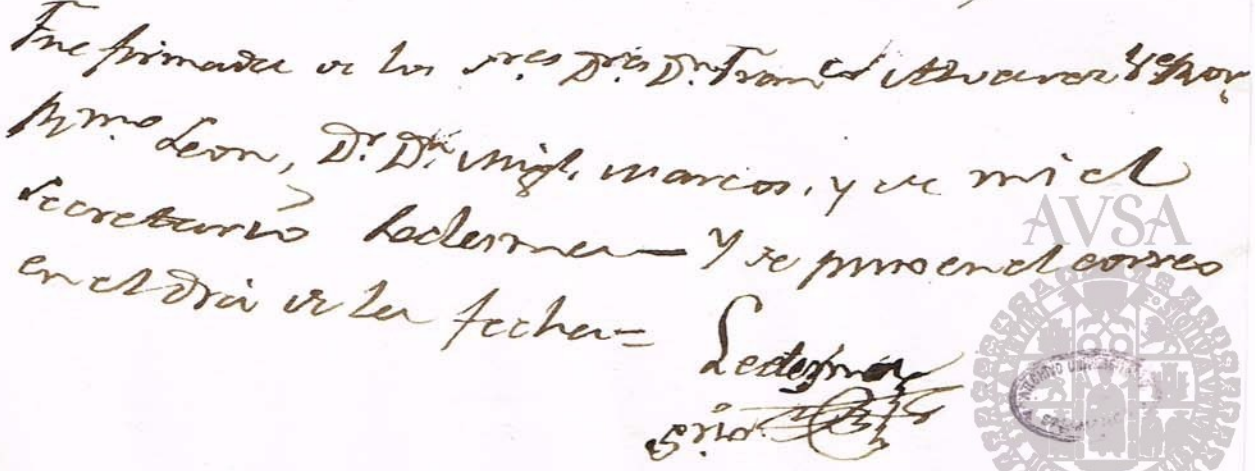 Fue firmada de los S.res D.res D.n Fran.co Alvarez, V.e Ror.
R.mo Leon, D.r D.n Migl. Marcos, y de mi el
Secretario Ledesma — Y se puso en el correo
en el dia de la fecha =
Ledesma
S.rio
AVSA